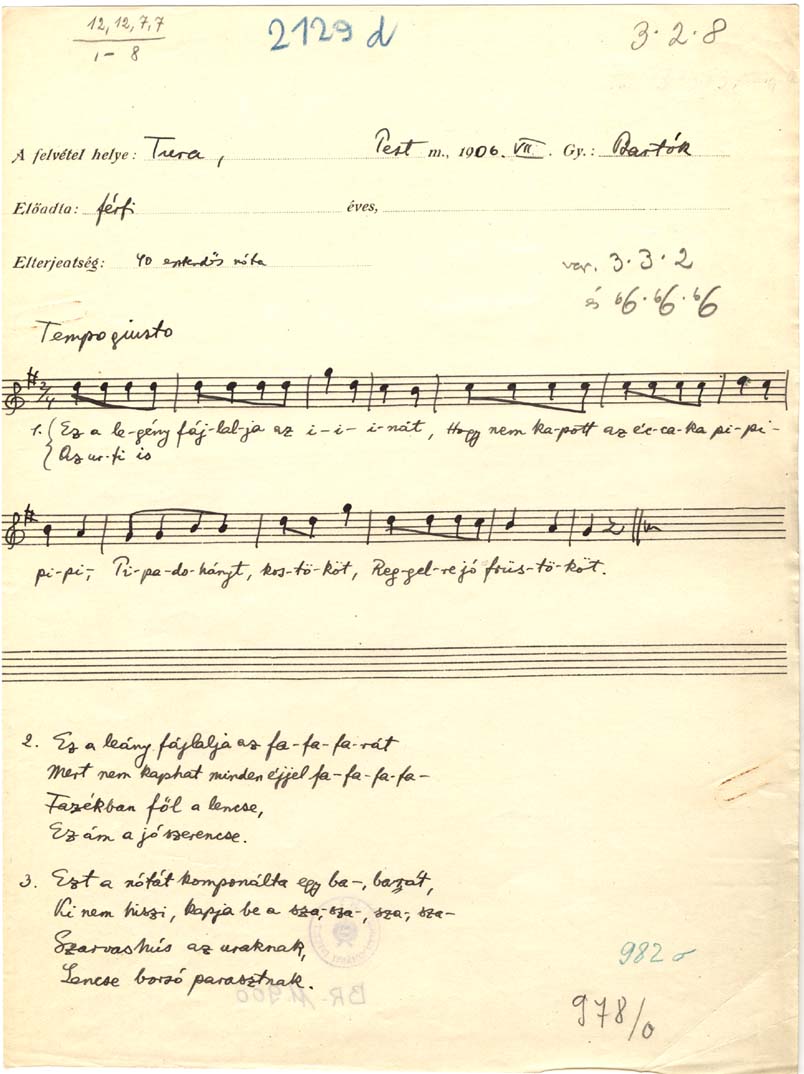 12, 12, 7, 7
1 – 8
2129 d
3·2·8
A felvétel helye: Tura, Pest m., 1906. VII. Gy.: Bartók
Előadta: férfi éves,
Elterjedtség: 40 esztendős nóta
var. 3·3·2
és b6·b6·b6
Tempo giusto
2/4
1. Ez a le-gény fáj-lal-ja az i-i-i-nát, Hogy nem ka-pott az éc-ca-ka pi-pi-
Az ur-fi is
pi-pi-, Pi-pa-do-hányt, kos-tö-köt, Reg-gel-re jó früs-tö-köt.
2. Ez a leány fájlalja az fa-fa-fa-rát
Mert nem kaphat minden éjjel fa-fa-fa-fa-
Fazékban föl a lencse,
Ez ám a jó szerencse.
3. Ezt a nótát komponálta egy ba-, barát,
Ki nem hiszi, kapja be a sza-, sza-, sza-, sza-
Szarvashús az uraknak,
Lencse borsó parasztnak.
BR-11900
982 σ
978/0